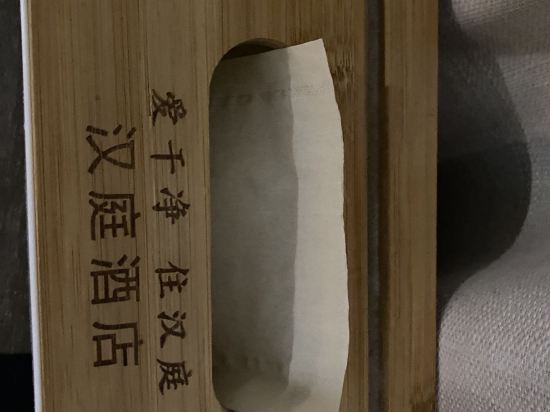 爱干净 住汉庭
汉庭酒店